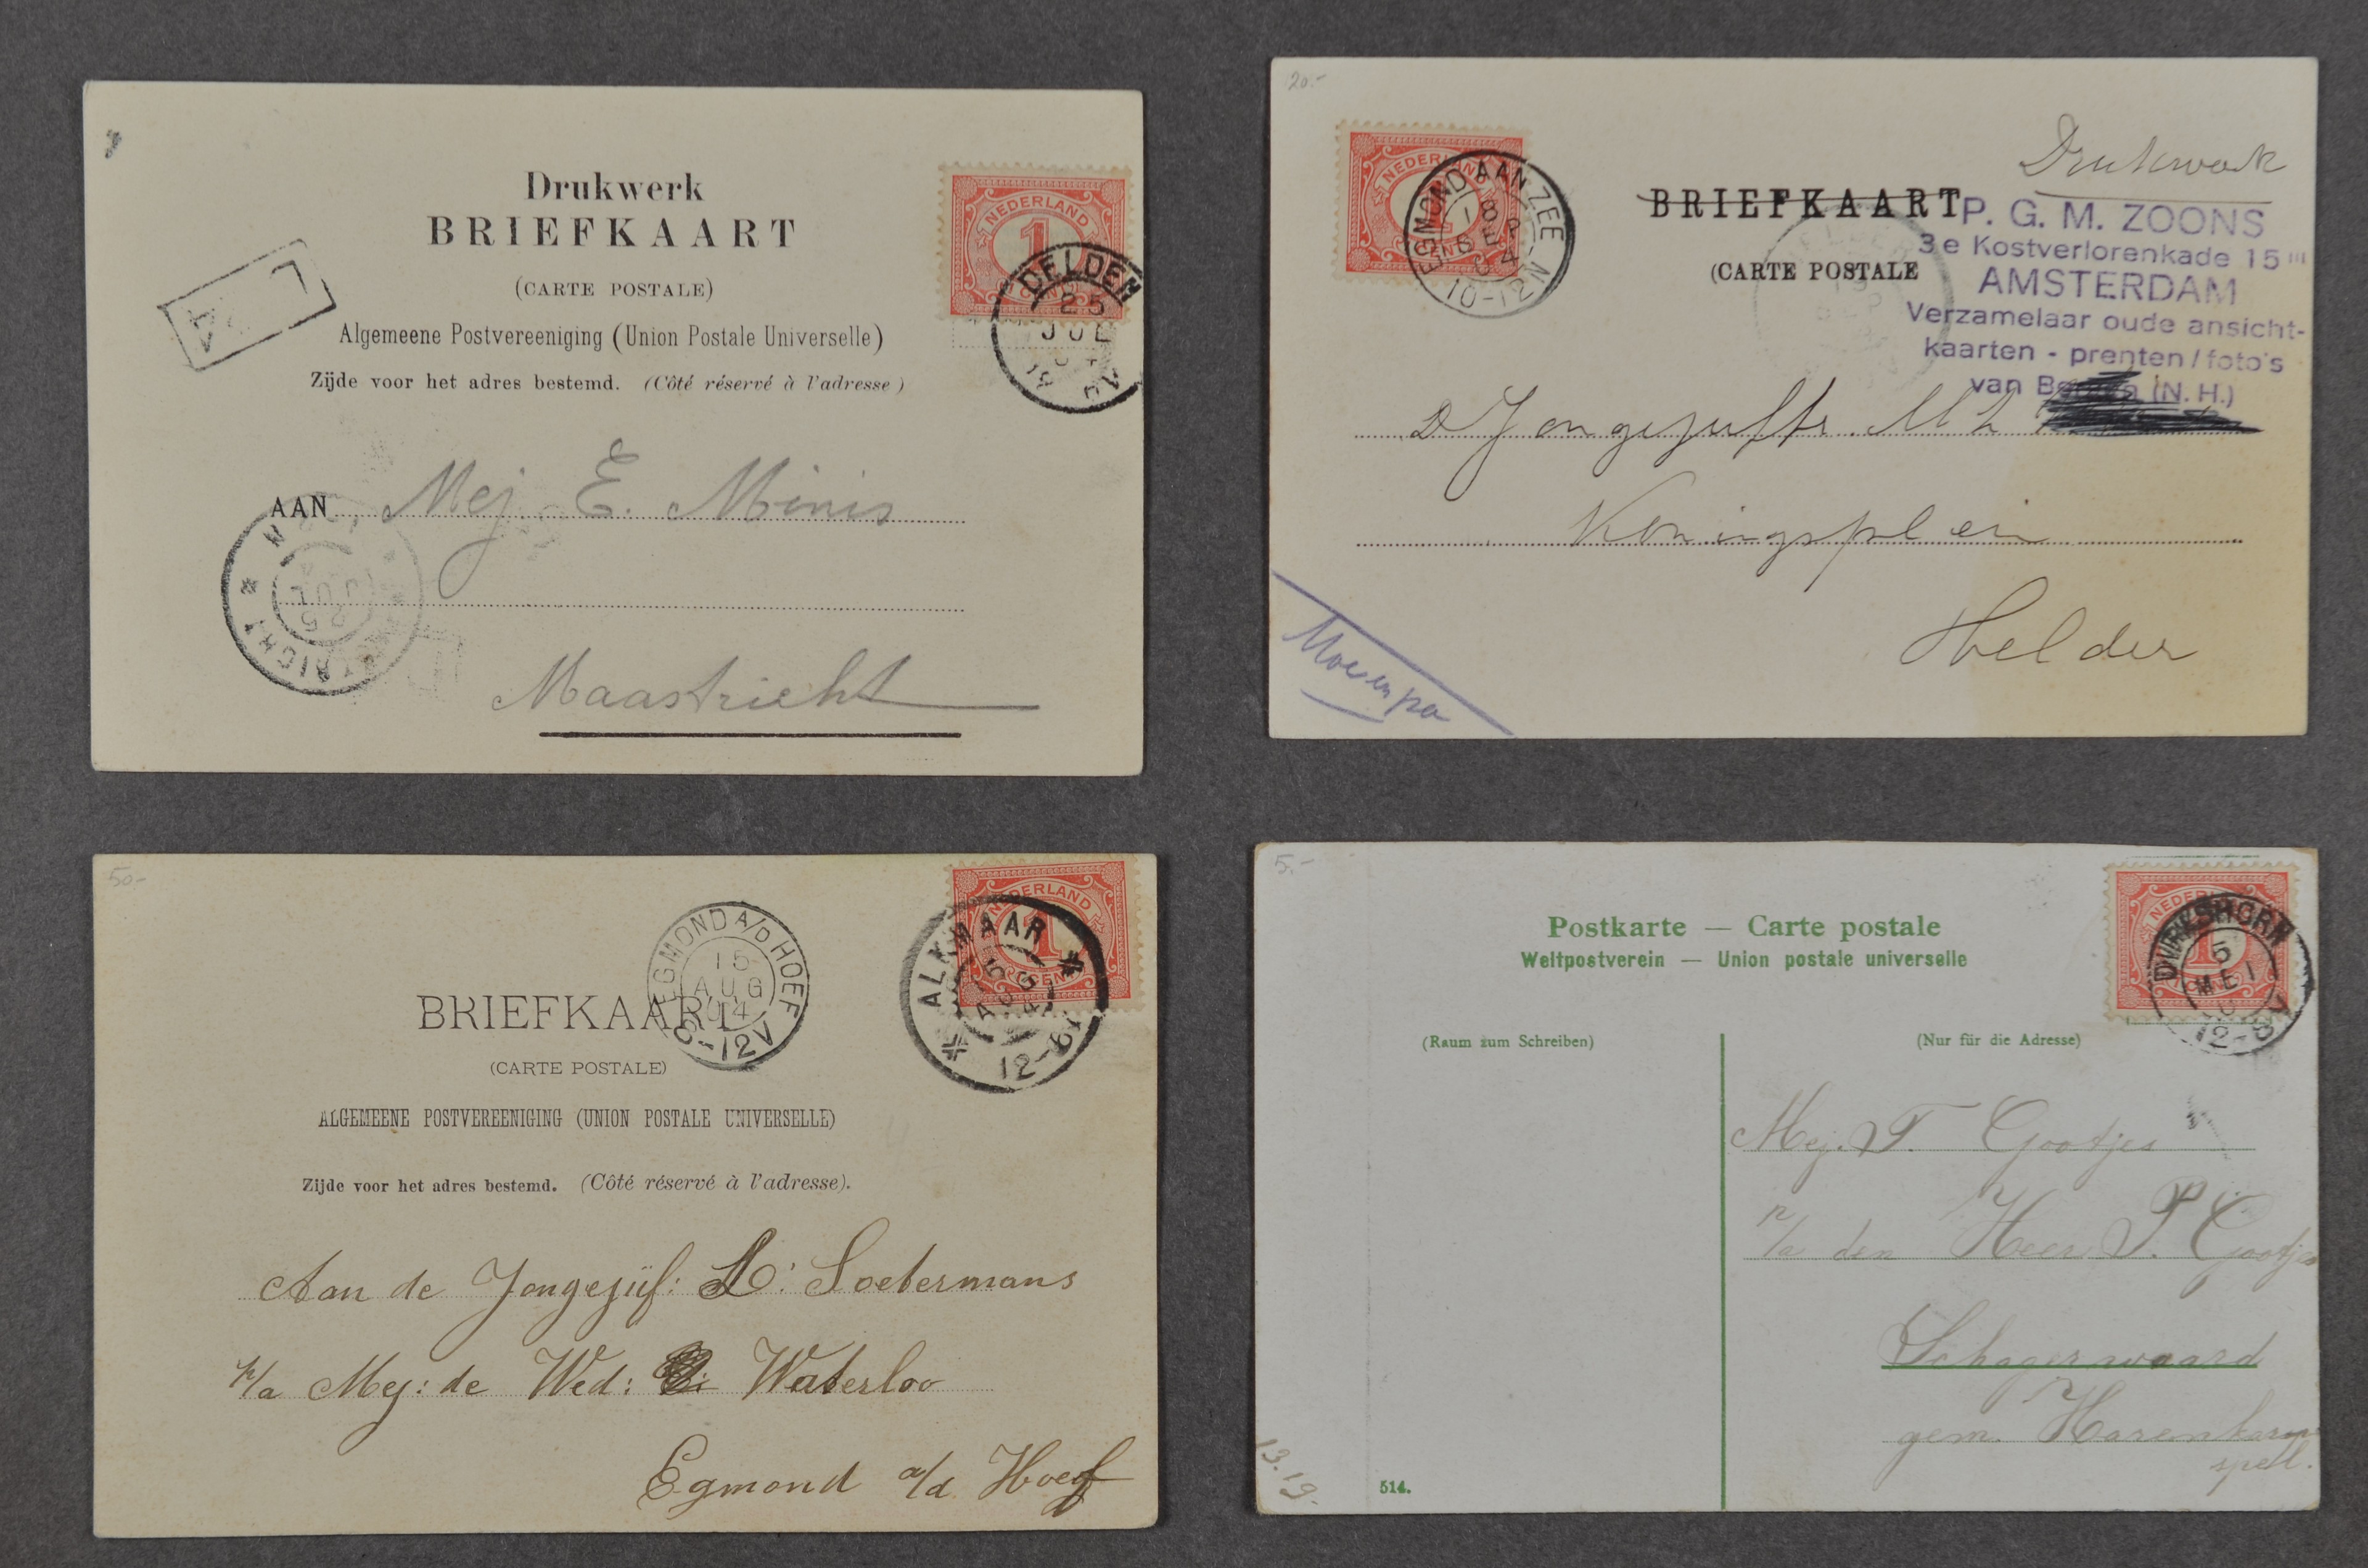 Drukwerk
BRIEFKAART
(CARTE POSTALE)
Algemeene Postvereeniging (Union Postale Universelle)
Zijde voor het adres bestemd. (Côté réservé à l'adresse)
NEDERLAND
1
CENT
DELDEN
25
JUL
AAN Mej. E. Minis
JUL
25
Maastricht
20.-
NEDERLAND
EGMOND AAN ZEE
18
SEP
04
10-12N
Drukwerk
BRIEFKAART
(CARTE POSTALE
P. G. M. ZOONS
3e Kostverlorenkade 15 III
AMSTERDAM
Verzamelaar oude ansicht-
kaarten - prenten / foto's
van (N. H.)
Jongejuffr. M
Koningsplein
Helder
Moe en pa
50-
NEDERLAND
1
CENT
ALKMAAR
15
AUG
04
12-
EGMOND A/D HOEF
15
AUG
04
-12V
BRIEFKAART
(CARTE POSTALE)
ALGEMEENE POSTVEREENIGING (UNION POSTALE UNIVERSELLE)
Zijde voor het adres bestemd. (Côté réservé à l'adresse).
Aan de Jongejuf: L: Soetermans
p/a Mej: de Wed: Waterloo
Egmond a/d Hoef
5.-
Postkarte — Carte postale
Weltpostverein — Union postale universelle
DIRKSHORN
5
MEI
12-
(Raum zum Schreiben)
(Nur für die Adresse)
Mej. T. Gootjes
p/a den Heer P. Gootjes
Schagerwaard
gem. Harenkarspell.
13.19.
514.